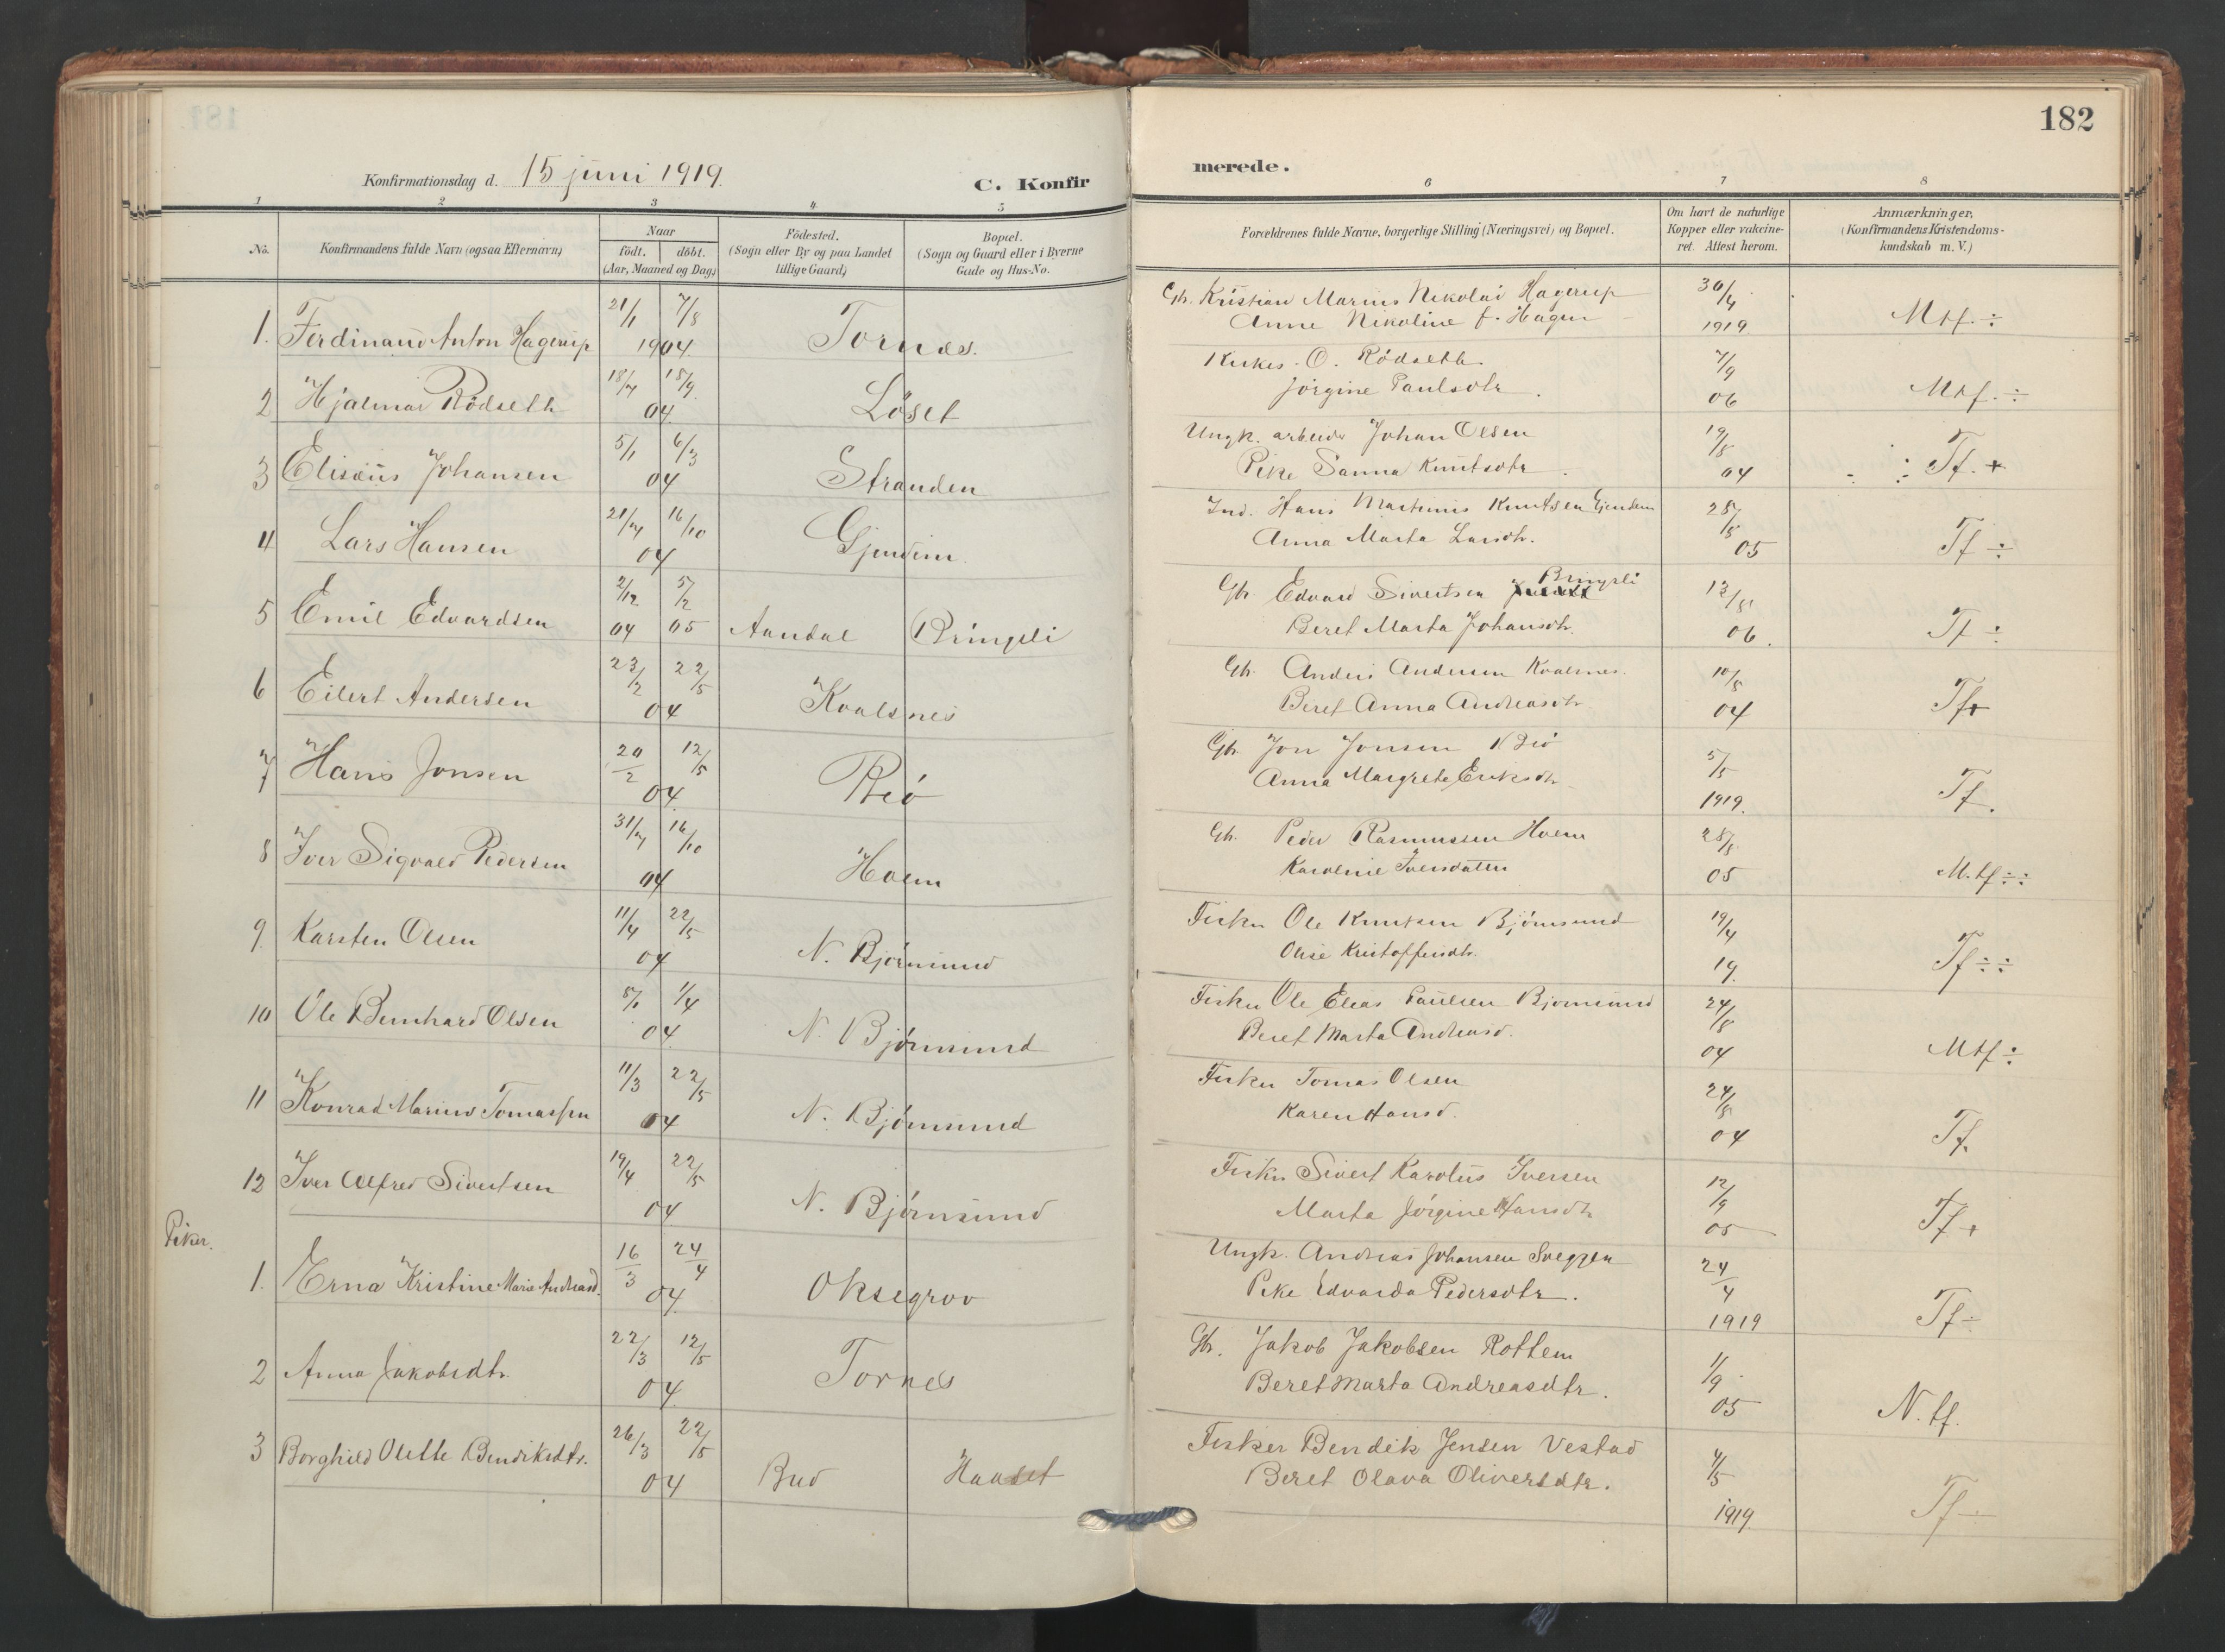 182
Konfirmationsdag d. 15 juni 1919.
C. Konfirmerede.
1 2 3 4 5 6 7 8
No. Konfirmandens fulde Navn (ogsaa Efternavn)
Naar
født. døbt.
(Aar, Maaned og Dag)
Fødested.
(Sogn eller By og paa Landet
tillige Gaard)
Bopæl.
(Sogn og Gaard eller i Byerne
Gade og Hus-No.
Forældrenes fulde Navne, borgerlige Stilling (Næringsvei) og Bopæl.
Om havt de naturlige
Kopper eller vakcine-
ret. Attest herom.
Anmærkninger,
(Konfirmandens Kristendoms-
kundskab m. V.)
1. Ferdinand Anton Hagerup 21/1 7/8 1904. Tornes.
Gbr. Kristian Marius Nikolai Hagerup
Anne Nikoline f. Hagen
30/4 1919 Mtf. ÷
2 Hjalmar Rödseth 18/7 18/9 04. Löset
Kirkes. O. Rödseth
Jörgine Paulsdtr.
7/9 06 Mtf. ÷
3 Elisæus Johansen 5/1 6/3 04 Stranden
Ungk. arbeider Johan Olsen
Pike Sanna Knutsdtr.
19/8 04 Tf. +
4 Lars Hansen 21/7 16/10 04 Gjendem.
Ind. Hans Martinus Knutsen Gjendem
Anna Marta Larsdtr.
28/8 05 Tf ÷
5 Emil Edvardsen 2/12 04 5/2 05 Aandal Bringsli
Gbr. Edvard Sivertsen Bringsli
Beret Marta Johansdtr.
12/8 06. Tf ÷
6 Eilert Andersen 23/2 22/5 04 Kvalsnes
Gbr. Anders Andersen Kvalsnes.
Beret Anna Andreasdtr
10/8 04 Tf+
7 Hans Jonsen 20/2 12/5 04. Riö
Gbr. Jon Jonsen Riö
Anna Margrete Eriksdtr
5/5 1919. Tf.
8 Iver Sigvald Pedersen 31/7 16/10 04 Hoem
Gbr. Peder Rasmussen Hoem
Karoline Iversdatter
28/8 05 M.tf ÷ ÷
9 Karsten Olsen 11/4 22/5 04 N. Björnsund
Fisker Ole Knutsen Björnsund
Olise Kristoffersdtr.
19/4 19. Tf ÷ ÷
10 Ole Bernhard Olsen 5/1 1/4 04 N. Björnsund
Fisker Ole Elias Paulsen Björnsund
Beret Marta Andreasd.
24/8 04 Mtf ÷
11 Konrad Marius Tomassen 11/3 22/5 04 N. Björnsund
Fisker Tomas Olsen
Karen Hansd.
24/8 04 Tf.
12 Iver Alfred Sivertsen 19/4 22/5 04 N. Björnsund
Fisker Sivert Karolus Iversen
Marta Jörgine Hansdtr
12/9 05 Tf +
Piker.
1. Erna Kristine Marie Andreasd. 16/3 24/4 04. Oksegrov
Ungk. Andreas Johansen Sveggen
Pike Edvarda Pedersdtr.
24/4 1919 Tf ÷
2 Anna Jakobsdtr. 22/3 12/5 04. Tornes
Gbr. Jakob Jakobsen Rottem
Beret Marta Andreasdtr.
1/9 05 N. tf.
3 Borghild Olette Bendiksdtr. 26/3 22/5 04 Bud Haaset
Fisker Bendik Jensen Vestad
Beret Olava Oliversdtr.
4/5 1919 Tf ÷